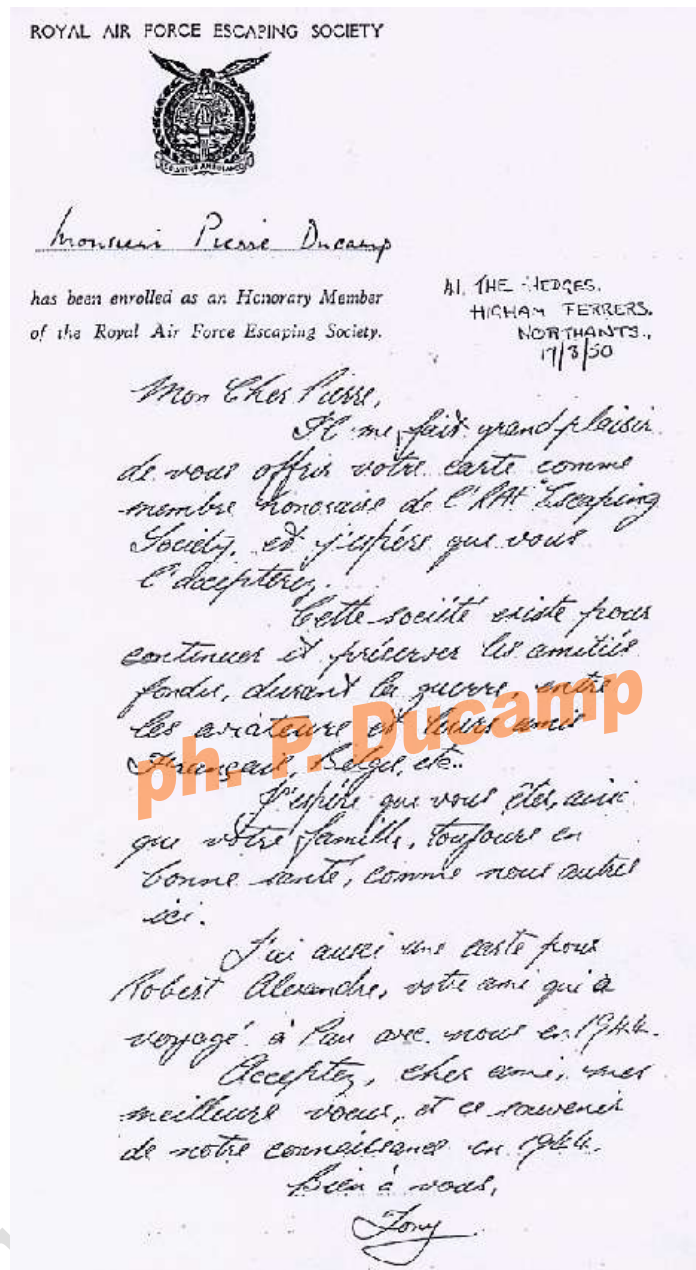 ROYAL AIR FORCE ESCAPING SOCIETY
Monsieur Pierre Ducamp
has been enrolled as an Honorary Member
of the Royal Air Force Escaping Society.
41. THE HEDGES.
HIGHAM FERRERS.
NORTHANTS.,
17/3/50
Mon Cher Pierre,
Il me fait grand plaisir
de vous offrir votre carte comme
membre honoraire de l'RAF Escaping
Society, et j'espère que vous
l'accepterez.
Cette société existe pour
continuer et préserver les amitiés
fondus, durant la guerre, entre
les aviateurs et leurs amis
Français, Belges, etc..
J'espère que vous êtes, ainsi
que votre famille, toujours en
bonne santé, comme nous autres
ici.
J'ai aussi une carte pour
Robert Alexandre, votre ami qui a
voyagé à Pau avec nous en 1944.
Acceptez, cher ami, mes
meilleure voeux, et ce souvenir
de notre connaissance en 1944.
Bien à vous,
Tony
ph. P. Ducamp